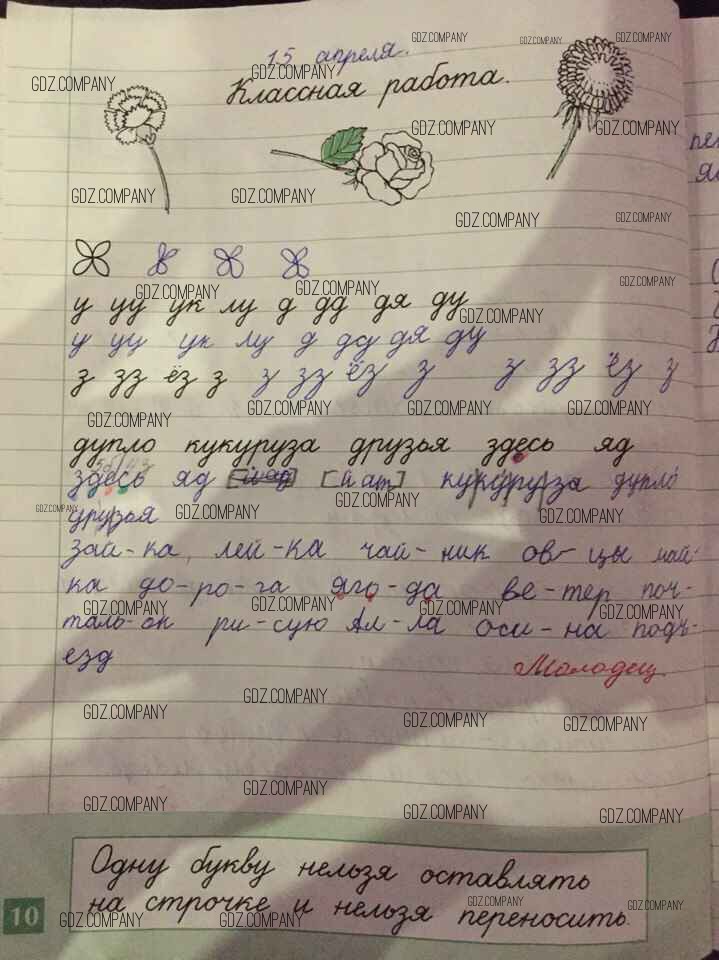 15 апреля.
Классная работа.
у уу ук лу д дд дя ду
у уу ук лу д дд дя ду
з зз ёз з з зз ёз з з зз ёз з
дупло кукуруза друзья здесь яд
здесь яд [йат] кукуруза дупло
друзья
зай-ка лей-ка чай-ник ов-цы май-
ка до-ро-га яго-да ве-тер поч-
таль-он ри-сую Ал-ла оси-на подъ-
езд
Молодец.
Одну букву нельзя оставлять
на строчке и нельзя переносить.
10
GDZ.COMPANY